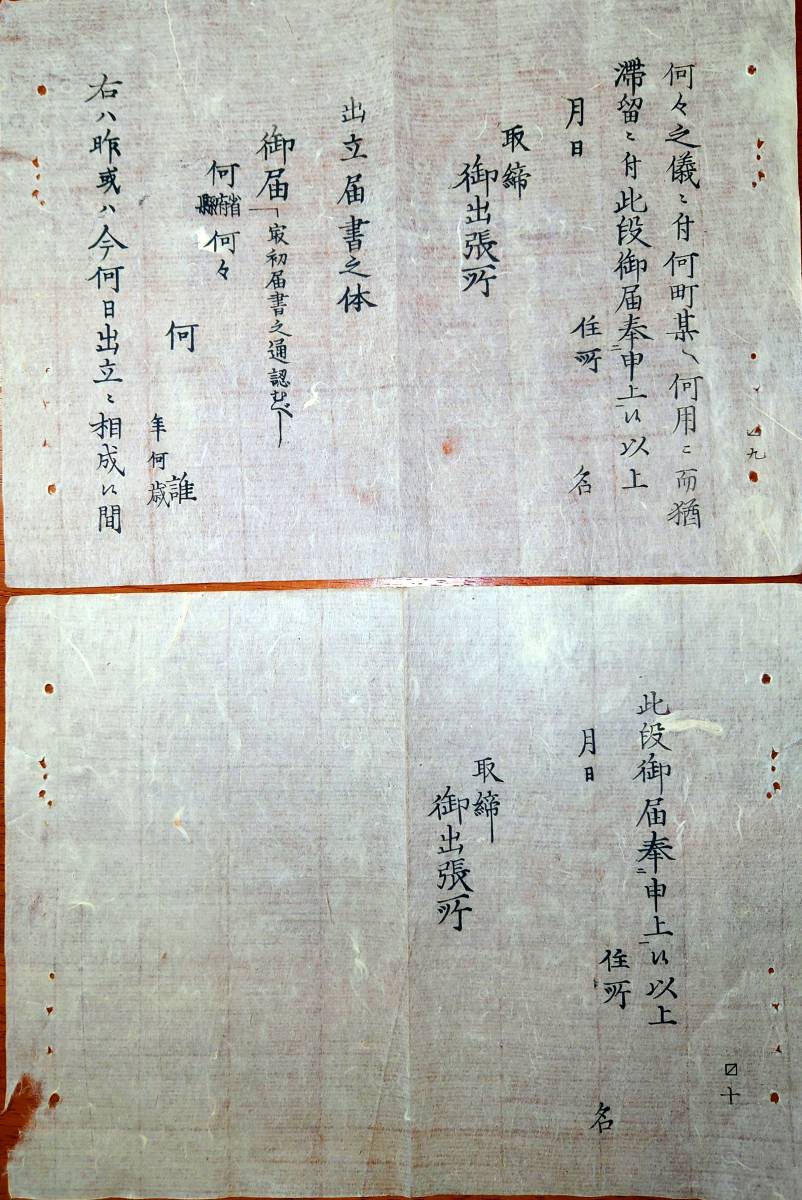 何々之儀ニ付何町某へ何用ニ而猶
滞留ニ付此段御届奉申上候以上
月日
住所
名
取締
御出張所
出立届書之体
御届
最初届書之通認むべし
何省府縣何々
何
誰
年何歳
右ハ昨或ハ今何日出立ニ相成候間
九
此段御届奉申上候以上
月日
住所
名
取締
御出張所
十